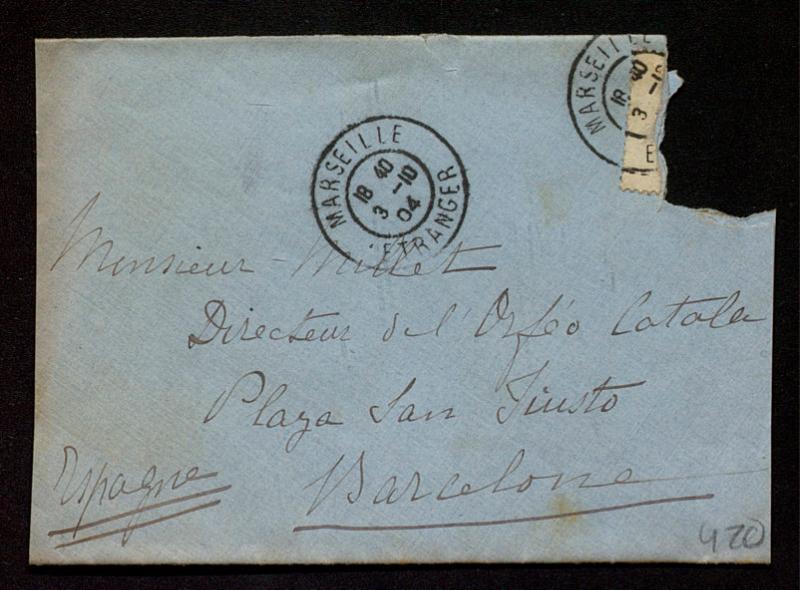 MARSEILLE
18 40
3 -10
E
MARSEILLE
18 40
3 -10
04
ETRANGER
Monsieur Millet
Directeur de l'Orféo Catala
Plaza San Justo
Barcelone
Espagne
420